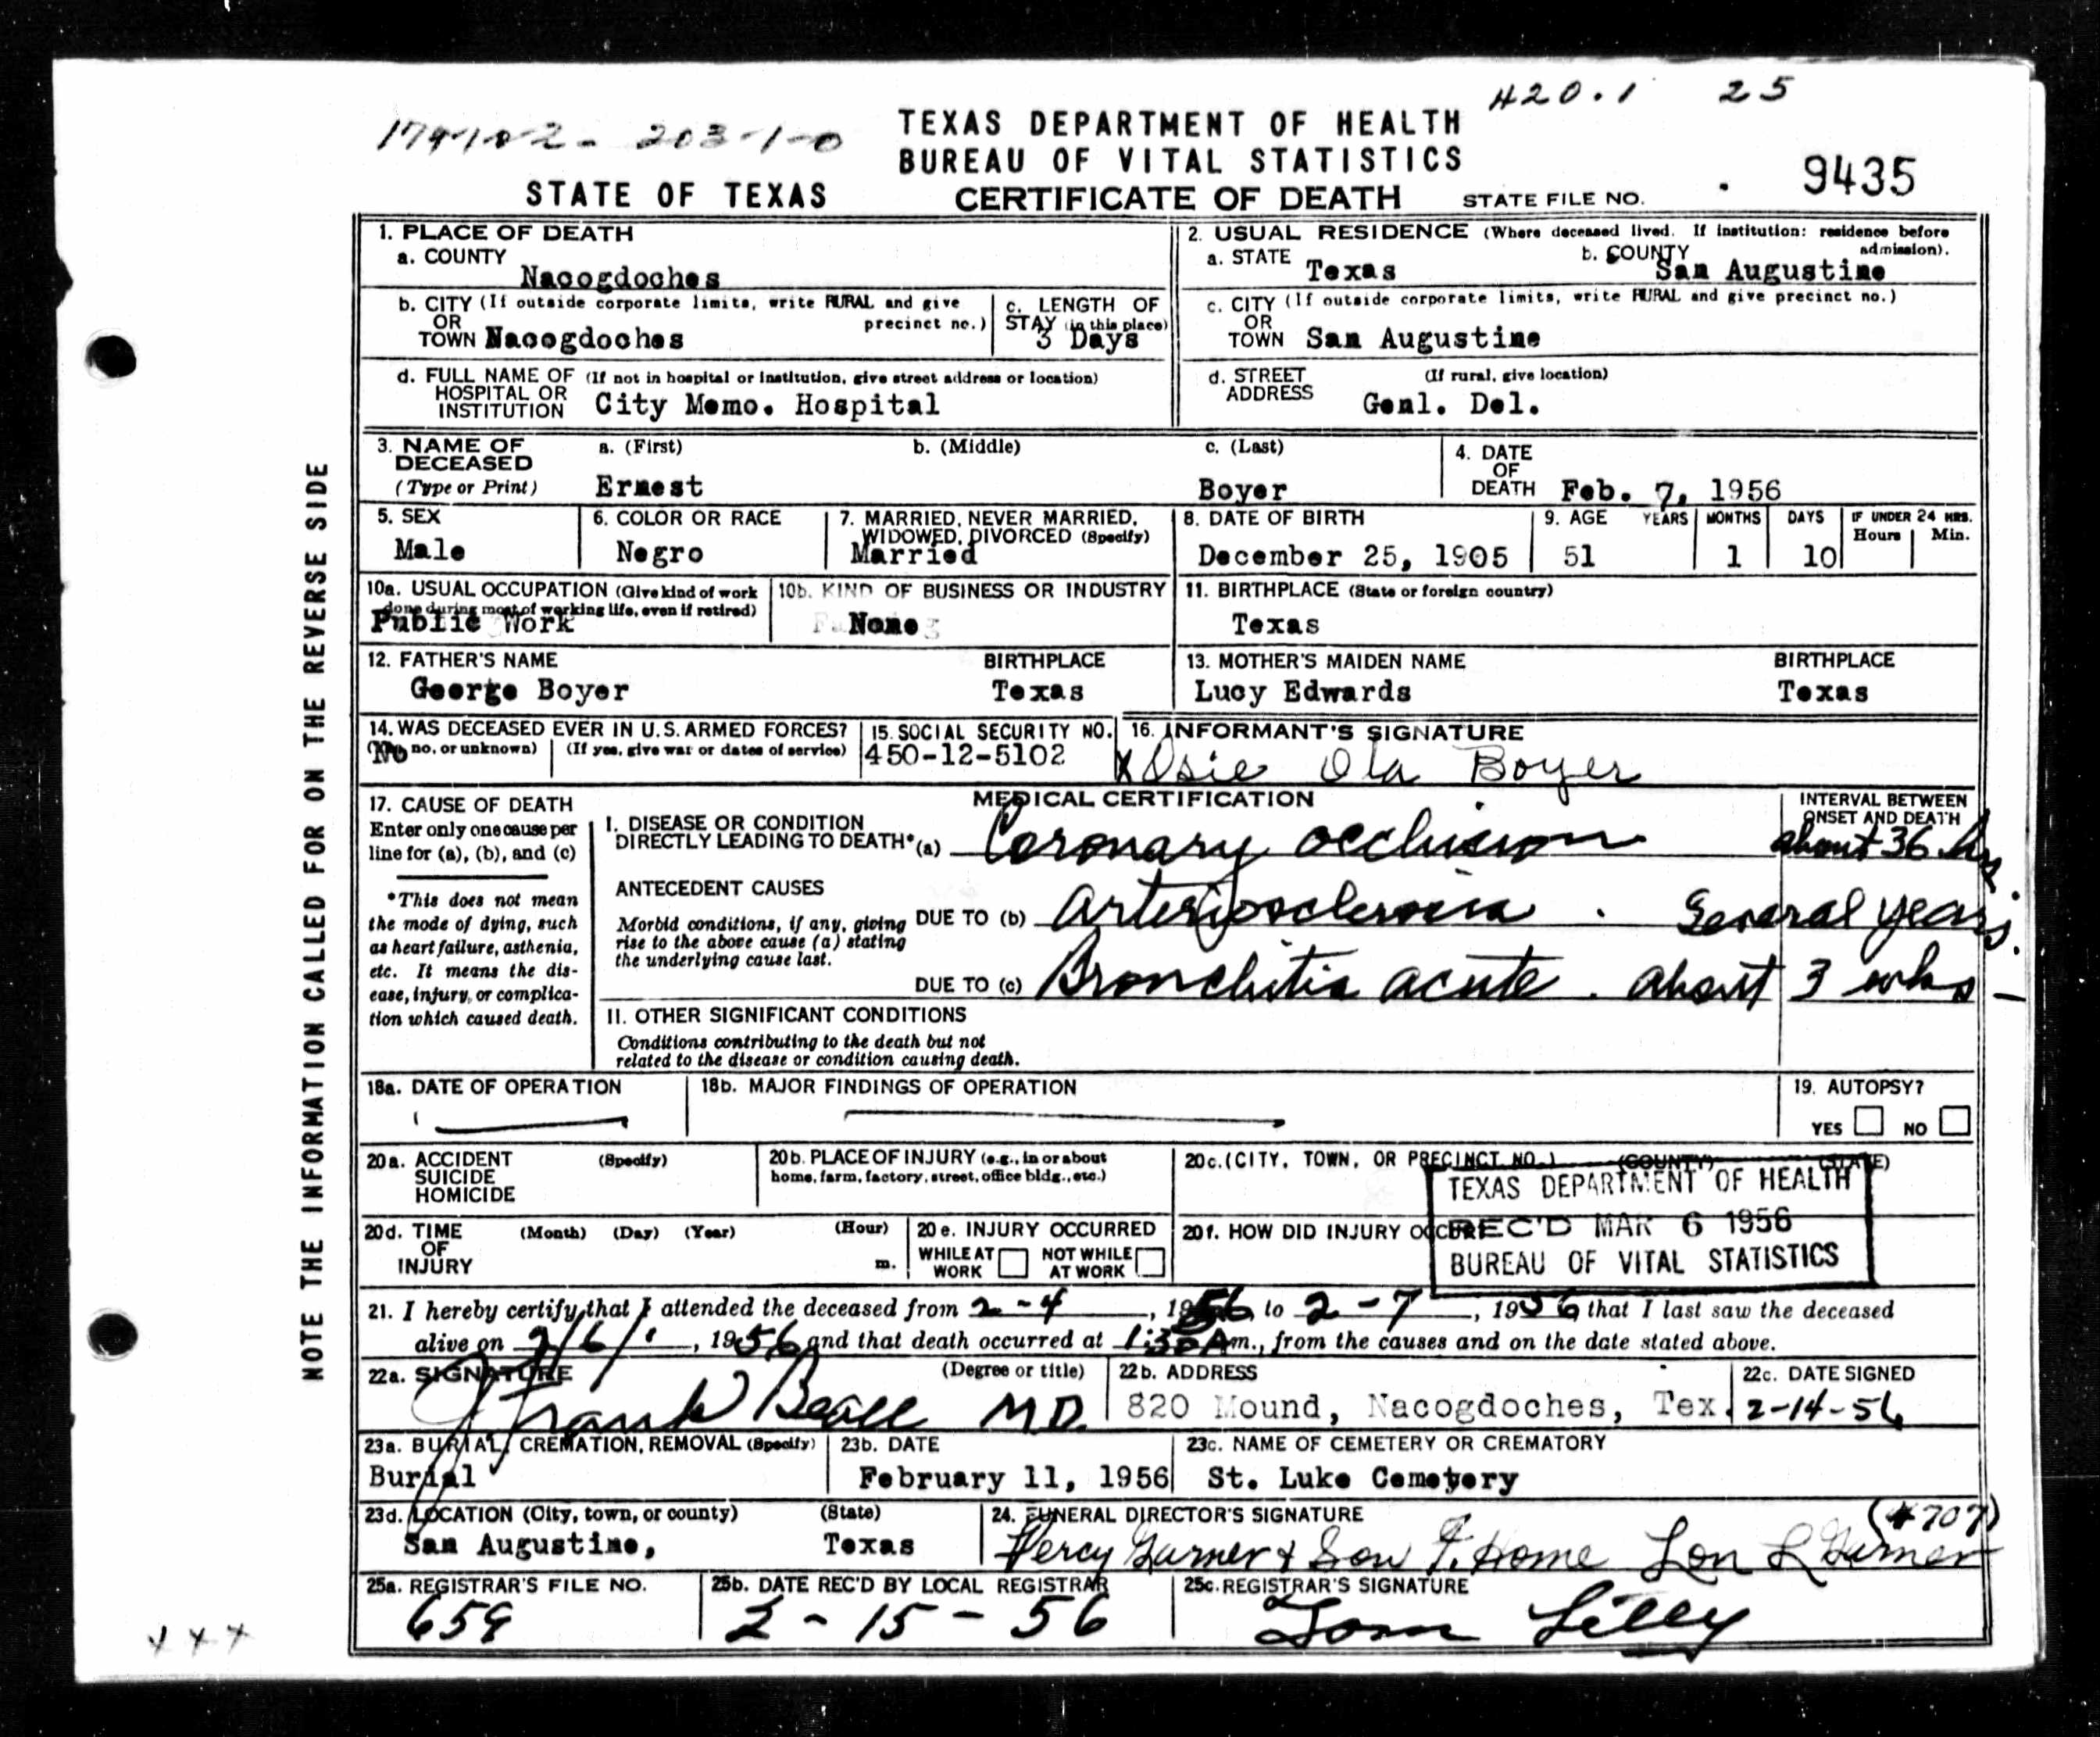 420.1 25
TEXAS DEPARTMENT OF HEALTH
BUREAU OF VITAL STATISTICS
203-1-0
STATE OF TEXAS CERTIFICATE OF DEATH STATE FILE NO. 9435
NOTE THE INFORMATION CALLED FOR ON THE REVERSE SIDE
1. PLACE OF DEATH
a. COUNTY
Nacogdoches
2. USUAL RESIDENCE (Where deceased lived. If institution: residence before admission).
a. STATE Texas b. COUNTY San Augustine
b. CITY (If outside corporate limits, write RURAL and give precinct no.)
OR
TOWN Nacogdoches
c. LENGTH OF STAY (in this place)
3 Days
c. CITY (If outside corporate limits, write RURAL and give precinct no.)
OR
TOWN San Augustine
d. FULL NAME OF (If not in hospital or institution, give street address or location)
HOSPITAL OR
INSTITUTION City Memo. Hospital
d. STREET (If rural, give location)
ADDRESS Genl. Del.
3. NAME OF DECEASED
(Type or Print)
a. (First) b. (Middle) c. (Last)
Ernest Boyer
4. DATE OF DEATH Feb. 7, 1956
5. SEX
Male
6. COLOR OR RACE
Negro
7. MARRIED, NEVER MARRIED, WIDOWED, DIVORCED (Specify)
Married
8. DATE OF BIRTH
December 25, 1905
9. AGE YEARS MONTHS DAYS IF UNDER 24 HRS.
Hours Min.
51 1 10
10a. USUAL OCCUPATION (Give kind of work done during most of working life, even if retired)
Public Work
10b. KIND OF BUSINESS OR INDUSTRY
None
11. BIRTHPLACE (State or foreign country)
Texas
12. FATHER'S NAME BIRTHPLACE
George Boyer Texas
13. MOTHER'S MAIDEN NAME BIRTHPLACE
Lucy Edwards Texas
14. WAS DECEASED EVER IN U.S. ARMED FORCES?
(Yes, no, or unknown) (If yes, give war or dates of service)
No
15. SOCIAL SECURITY NO.
450-12-5102
16. INFORMANT'S SIGNATURE
X Osie Ola Boyer
17. CAUSE OF DEATH
Enter only one cause per line for (a), (b), and (c)
*This does not mean the mode of dying, such as heart failure, asthenia, etc. It means the disease, injury, or complication which caused death.
MEDICAL CERTIFICATION
INTERVAL BETWEEN ONSET AND DEATH
I. DISEASE OR CONDITION
DIRECTLY LEADING TO DEATH* (a) Coronary occlusion about 36 hrs.
ANTECEDENT CAUSES
Morbid conditions, if any, giving rise to the above cause (a) stating the underlying cause last.
DUE TO (b) Arteriosclerosis. Several years.
DUE TO (c) Bronchitis acute. about 3 wks -
II. OTHER SIGNIFICANT CONDITIONS
Conditions contributing to the death but not related to the disease or condition causing death.
18a. DATE OF OPERATION
18b. MAJOR FINDINGS OF OPERATION
19. AUTOPSY?
YES NO
20a. ACCIDENT (Specify)
SUICIDE
HOMICIDE
20b. PLACE OF INJURY (e.g., in or about home, farm, factory, street, office bldg., etc.)
20c. (CITY, TOWN, OR PRECINCT NO.) (COUNTY) (STATE)
TEXAS DEPARTMENT OF HEALTH
REC'D MAR 6 1956
BUREAU OF VITAL STATISTICS
20d. TIME OF INJURY (Month) (Day) (Year) (Hour) m.
20e. INJURY OCCURRED
WHILE AT WORK NOT WHILE AT WORK
20f. HOW DID INJURY OCCUR?
21. I hereby certify that I attended the deceased from 2-4, 1956 to 2-7, 1956 that I last saw the deceased
alive on 2/6/, 1956 and that death occurred at 1:30 A m., from the causes and on the date stated above.
22a. SIGNATURE (Degree or title)
J Frank Beall M.D.
22b. ADDRESS
820 Mound, Nacogdoches, Tex.
22c. DATE SIGNED
2-14-56
23a. BURIAL, CREMATION, REMOVAL (Specify)
Burial
23b. DATE
February 11, 1956
23c. NAME OF CEMETERY OR CREMATORY
St. Luke Cemetery
23d. LOCATION (City, town, or county) (State)
San Augustine, Texas
24. FUNERAL DIRECTOR'S SIGNATURE (#707)
Percy Garner & Son F. Home Lon L Garner
25a. REGISTRAR'S FILE NO.
659
25b. DATE REC'D BY LOCAL REGISTRAR
2-15-56
25c. REGISTRAR'S SIGNATURE
Tom Lilly